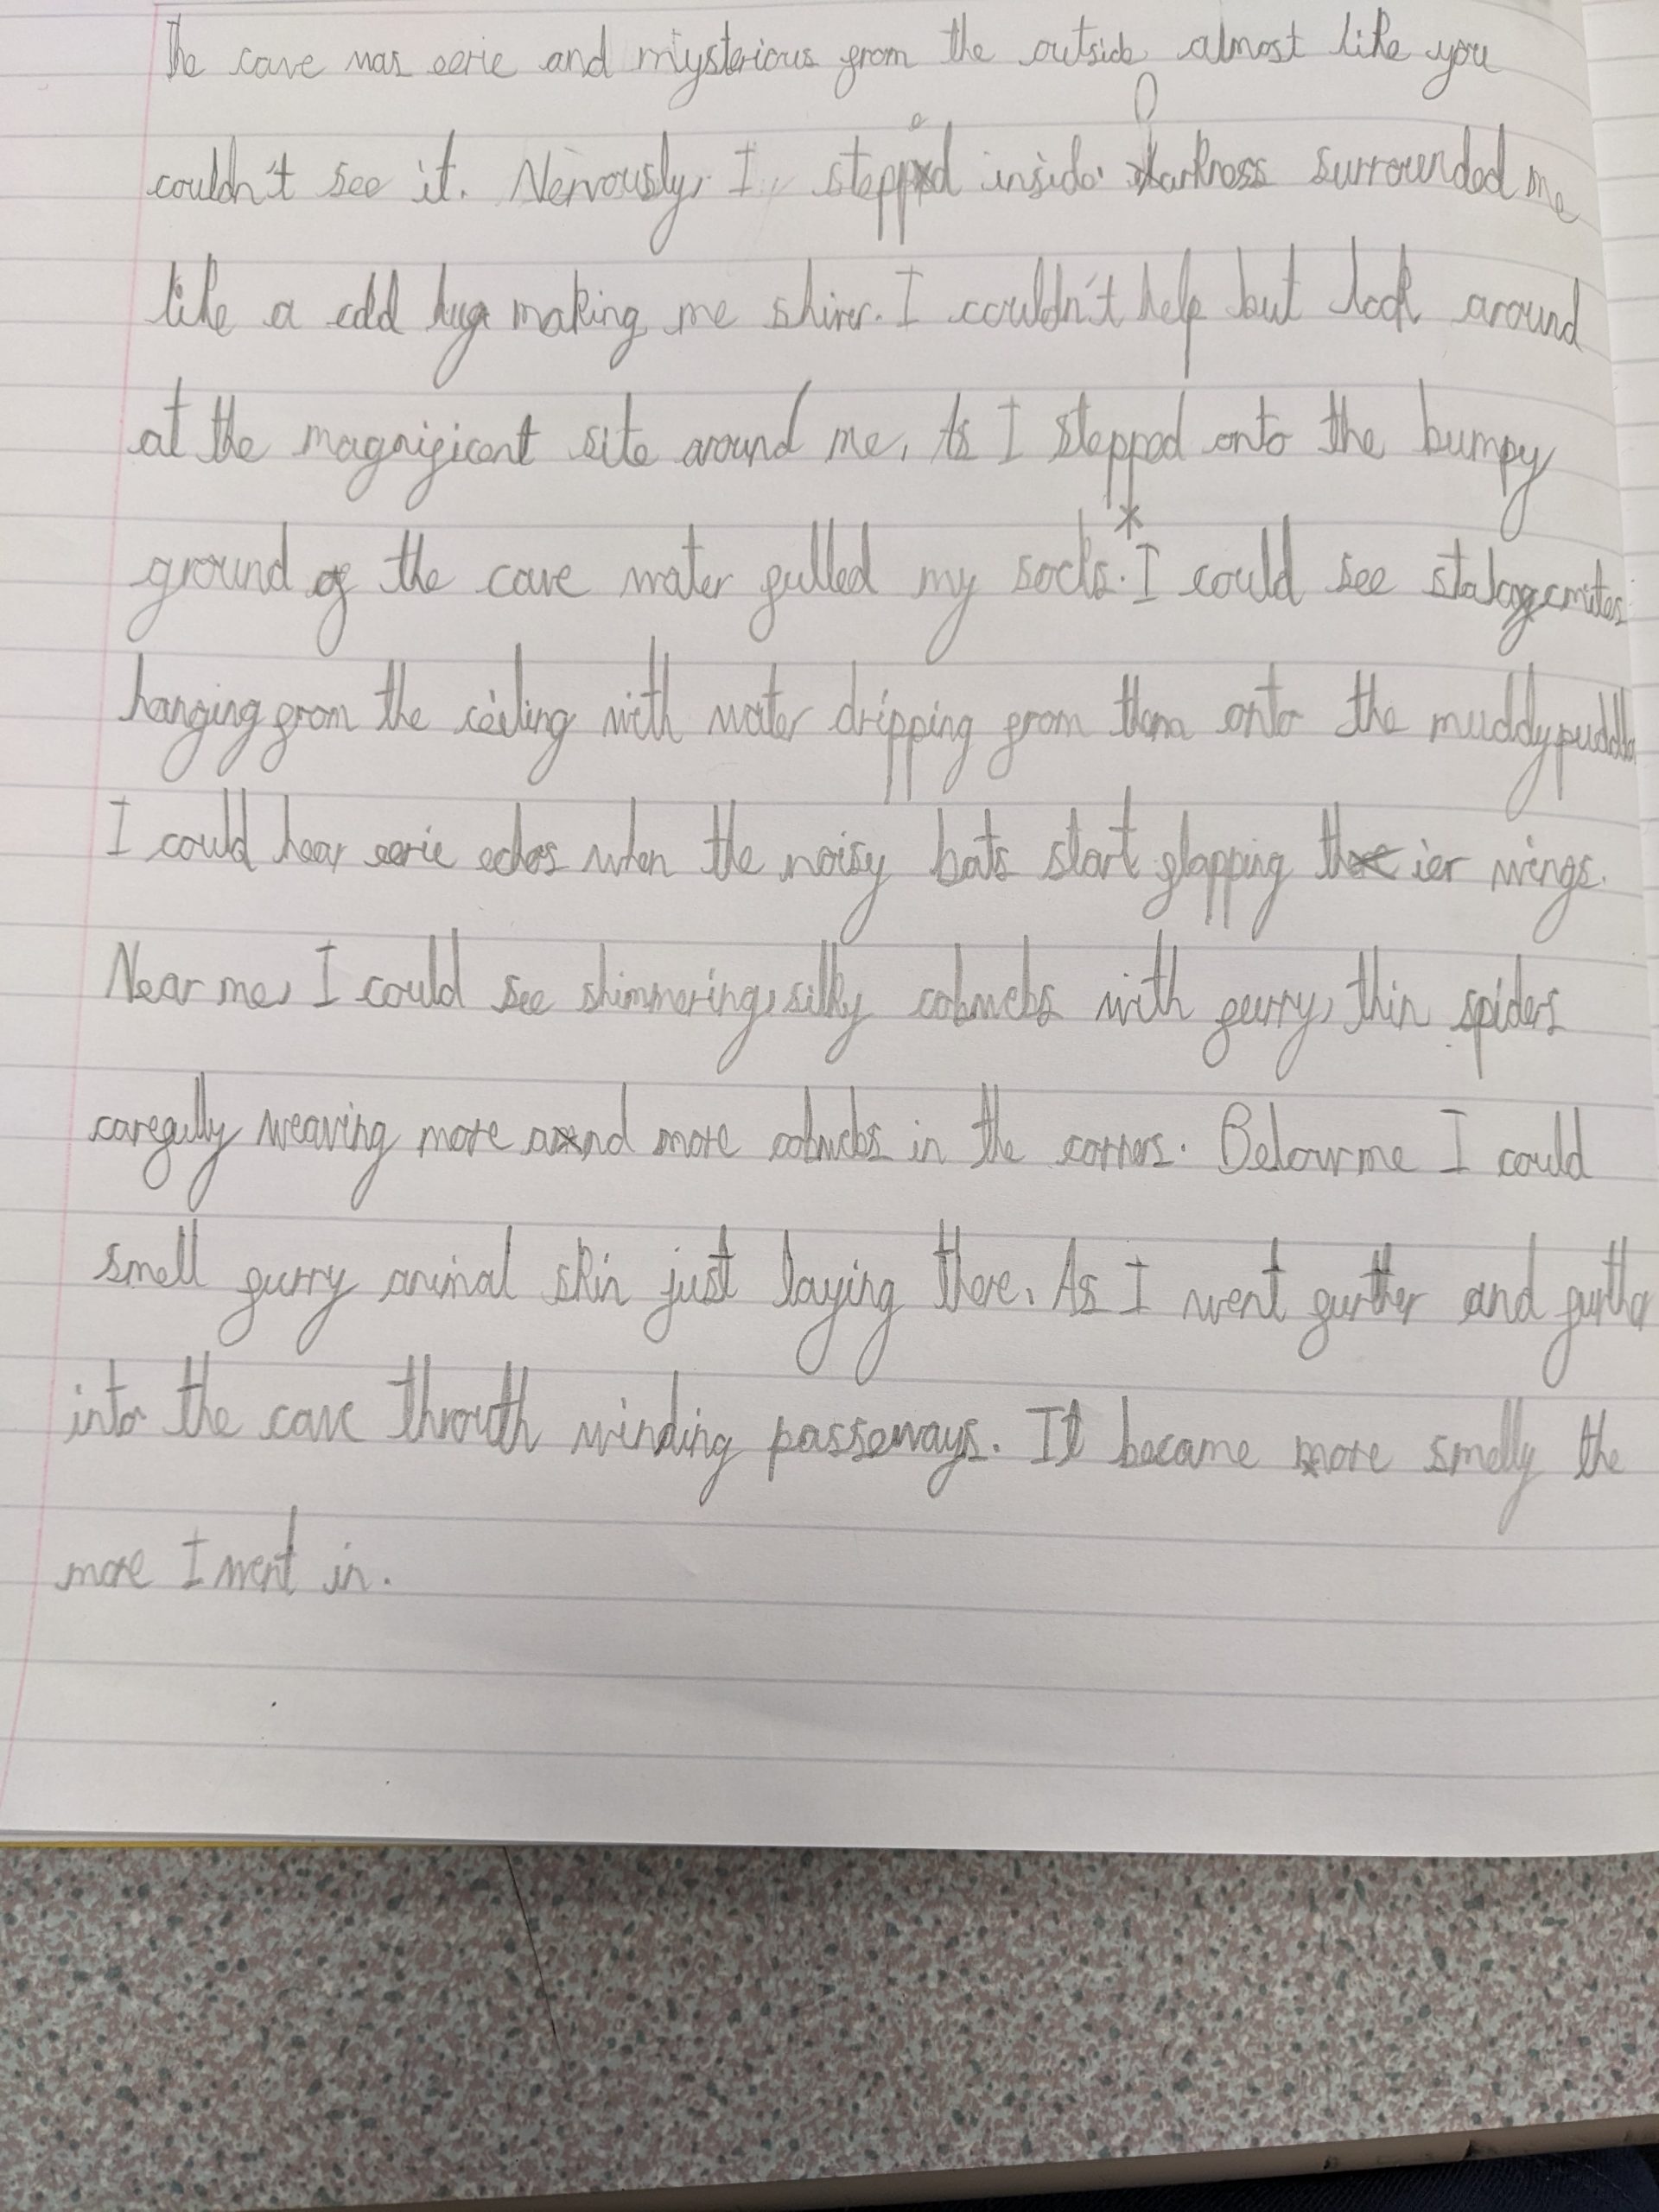 The cave was eerie and mysterious from the outside almost like you
couldn't see it. Nervously, I, stepped inside. Darkness surrounded me
like a cold hug making me shiver. I couldn't help but look around
at the magnificent site around me. As I stepped onto the bumpy
ground of the cave water fulled my socks. * I could see stalagcmites
hanging from the ceiling with water dripping from them onto the muddy puddle
I could hear eerie echos when the noisy bats start flapping thier wings.
Near me, I could see shimmering, silky cobwebs with furry, thin spiders
carefully weaving more and more cobwebs in the corners. Below me I could
smell furry animal skin just laying there. As I went further and further
into the cave throuth winding passeways. It became more smelly the
more I went in.